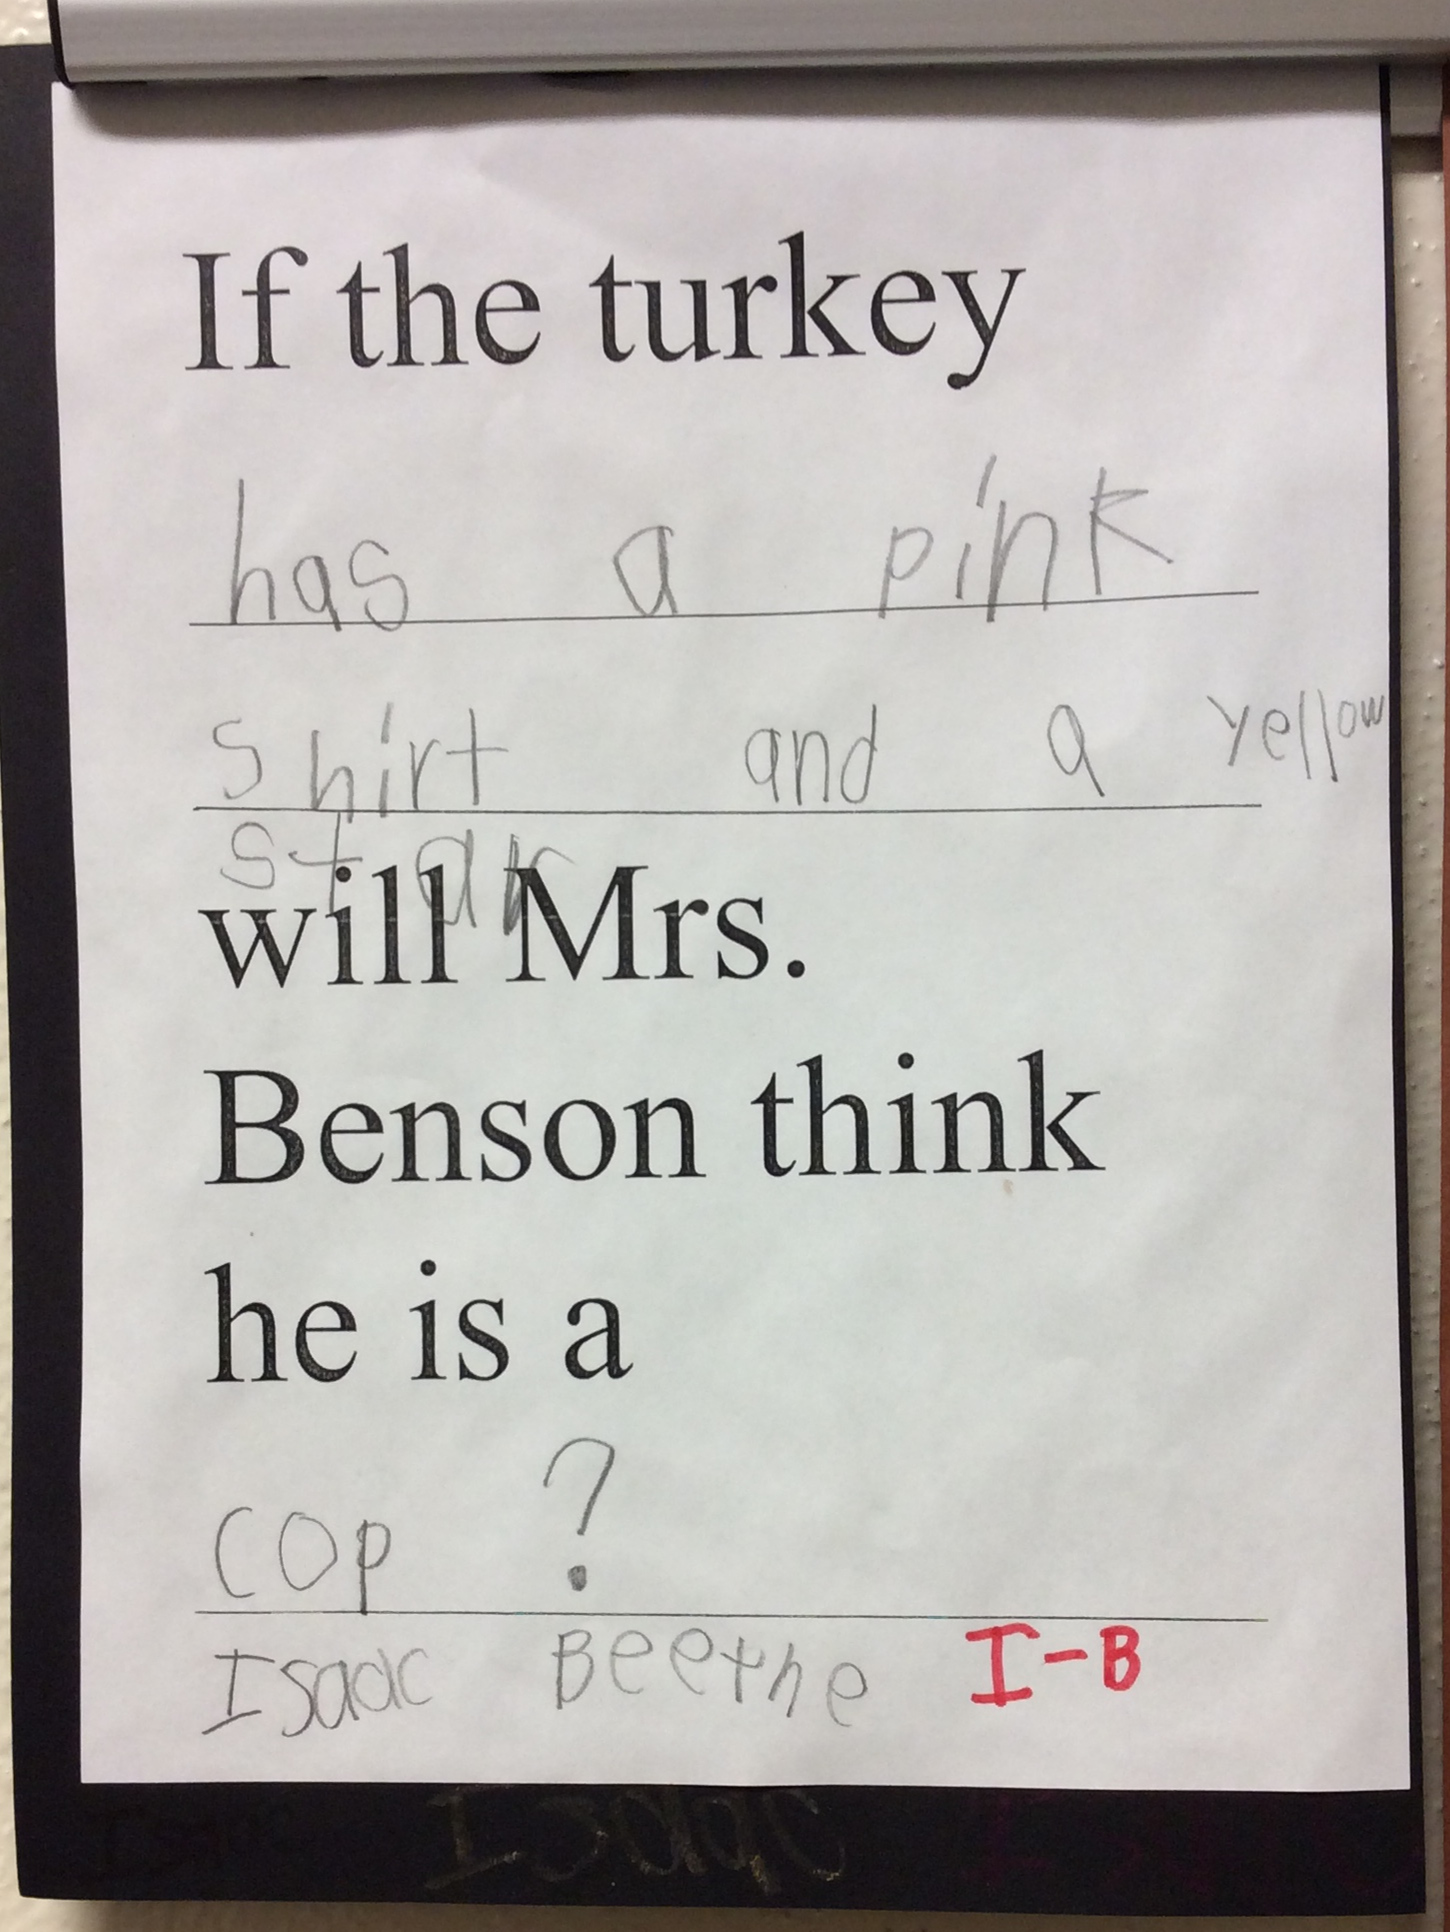 If the turkey
has a pink
shirt and a yellow
star
will Mrs.
Benson think
he is a
cop ?
Isaac Beethe I-B
Isaac